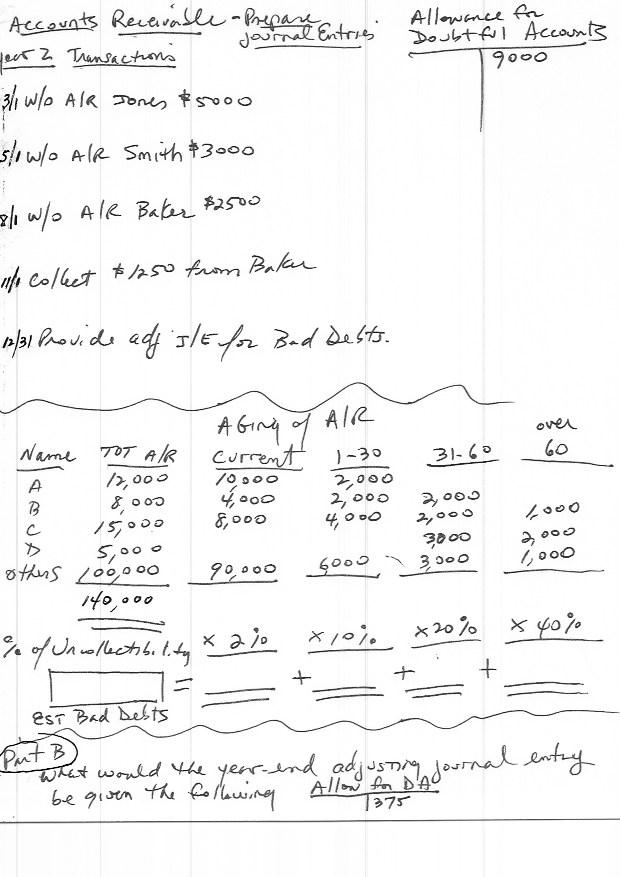 Accounts Receivable - Prepare Journal Entries
Allowance for Doubtful Accounts
9000
Year 2 Transactions
3/1 W/O A/R Jones $5000
5/1 W/O A/R Smith $3000
8/1 W/O A/R Baker $2500
11/1 Collect $1250 from Baker
12/31 Provide adj J/E for Bad Debts.
Aging of A/R
Name TOT A/R Current 1-30 31-60 over 60
A 12,000 10,000 2,000
B 8,000 4,000 2,000 2,000
C 15,000 8,000 4,000 2,000 1,000
D 5,000 3,000 2,000
others 100,000 90,000 6000 3,000 1,000
140,000
% of Uncollectibility x 2% x 10% x 20% x 40%
= + + +
EST Bad Debts
Part B
What would the year-end adjusting journal entry
be given the following Allow for DA
1375